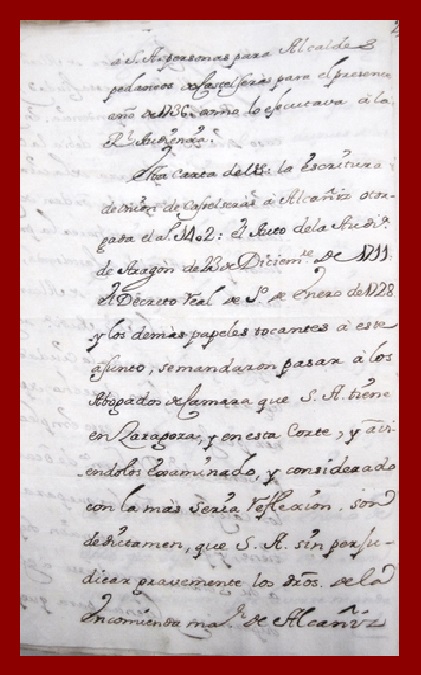 a S. A. personas para Alcalde
pedaneos de Castelseras para el presente
año de 1736. como lo ejecutava â la
Rl. Audienza.
Esta carta de la escritura
de union de Castelseras â Alcañiz otor-
gada el aº. 1402: el Auto de la Audiª.
de Aragon de 13 de Diciemre. de 1711.
el Decreto Real de 5º de Enero de 1728
y los demas papeles tocantes â este
asunto, se mandaron pasar â los
Abogados de Camara que S. A. tiene
en Zaragoza, y en esta Corte, y avi
endolos Examinado, y considerado
con la mas seria reflexion, son
de dictamen, que S. A. sin perju-
dicar gravemente los dros. de la
Encomienda maor. de Alcañiz